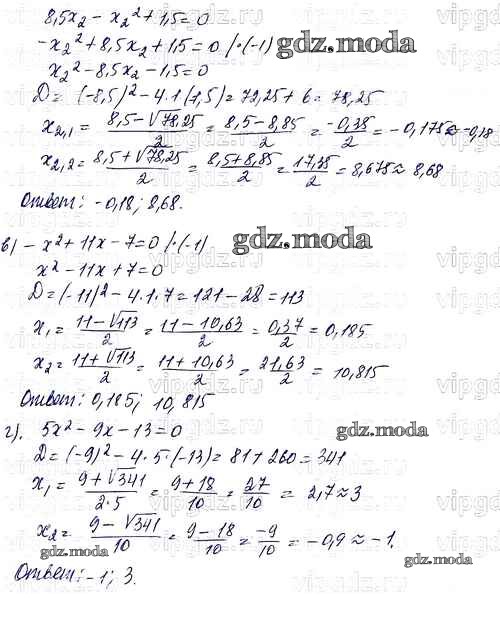 8,5x₂ - x₂² + 1,5 = 0
-x₂² + 8,5x₂ + 1,5 = 0 /·(-1)
gdz.moda
x₂² - 8,5x₂ - 1,5 = 0
D = (-8,5)² - 4·1·(1,5) = 72,25 + 6 = 78,25
x₂,₁ = (8,5 - √78,25)/2 = (8,5 - 8,85)/2 = -0,35/2 = -0,175 ≈ -0,18
x₂,₂ = (8,5 + √78,25)/2 = (8,5 + 8,85)/2 = 17,35/2 = 8,675 ≈ 8,68
Ответ: -0,18; 8,68.
в) -x² + 11x - 7 = 0 /·(-1)
gdz.moda
x² - 11x + 7 = 0
D = (-11)² - 4·1·7 = 121 - 28 = 113
x₁ = (11 - √113)/2 = (11 - 10,63)/2 = 0,37/2 = 0,185
x₂ = (11 + √113)/2 = (11 + 10,63)/2 = 21,63/2 = 10,815
Ответ: 0,185; 10,815
г). 5x² - 9x - 13 = 0
gdz.moda
D = (-9)² - 4·5·(-13) = 81 + 260 = 341
x₁ = (9 + √341)/(2·5) = (9 + 18)/10 = 27/10 = 2,7 ≈ 3
x₂ = (9 - √341)/10 = (9 - 18)/10 = -9/10 = -0,9 ≈ -1.
gdz.moda
gdz.moda
Ответ: -1; 3.